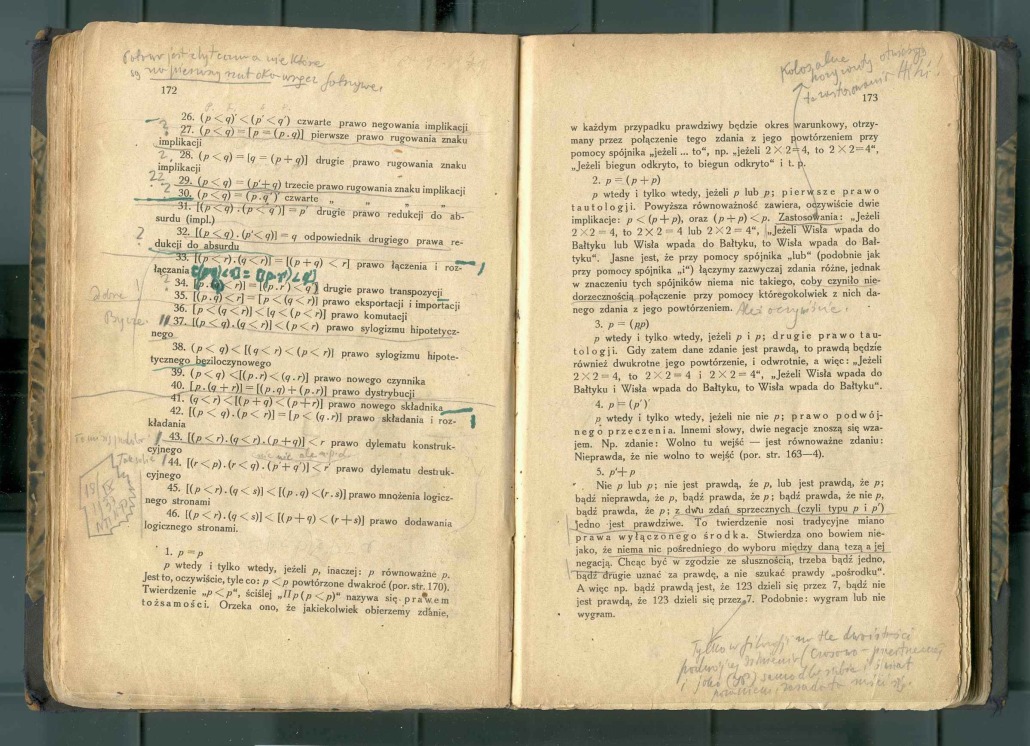 172
26. (p < q)′ < (p′ < q′) czwarte prawo negowania implikacji
27. (p < q) = [p = (p . q)] pierwsze prawo rugowania znaku
implikacji
28. (p < q) = [q = (p + q)] drugie prawo rugowania znaku
implikacji
29. (p < q) = (p′ + q) trzecie prawo rugowania znaku implikacji
30. (p < q) = (p . q′)′ czwarte „ „ „ „
31. [(p < q) . (p < q′)] = p′ drugie prawo redukcji do ab-
surdu (impl.)
32. [(p < q) . (p′ < q)] = q odpowiednik drugiego prawa re-
dukcji do absurdu
33. [(p < r) . (q < r)] = [(p + q) < r] prawo łączenia i roz-
łączania
34. [(p . q) < r] = [(p . r′) < q′] drugie prawo transpozycji
35. [(p . q) < r] = [p < (q < r)] prawo eksportacji i importacji
36. [p < (q < r)] < [q < (p < r)] prawo komutacji
37. [(p < q) . (q < r)] < (p < r) prawo sylogizmu hipotetycz-
nego
38. (p < q) < [(q < r) < (p < r)] prawo sylogizmu hipote-
tycznego beziloczynowego
39. (p < q) < [(p . r) < (q . r)] prawo nowego czynnika
40. [p . (q + r)] = [(p . q) + (p . r)] prawo dystrybucji
41. (q < r) < [(p + q) < (p + r)] prawo nowego składnika
42. [(p < q) . (p < r)] = [p < (q . r)] prawo składania i roz-
kładania
43. [(p < r) . (q < r) . (p + q)] < r prawo dylematu konstruk-
cyjnego
44. [(r < p) . (r < q) . (p′ + q′)] < r′ prawo dylematu destruk-
cyjnego
45. [(p < r) . (q < s)] < [(p . q) < (r . s)] prawo mnożenia logicz-
nego stronami
46. [(p < r) . (q < s)] < [(p + q) < (r + s)] prawo dodawania
logicznego stronami.
1. p = p
p wtedy i tylko wtedy, jeżeli p, inaczej: p równoważne p.
Jest to, oczywiście, tyle co: p < p powtórzone dwakroć (por. str. 170).
Twierdzenie „p < p“, ściślej „Πp (p < p)“ nazywa się prawem
tożsamości. Orzeka ono, że jakiekolwiek obierzemy zdanie,
173
w każdym przypadku prawdziwy będzie okres warunkowy, otrzy-
many przez połączenie tego zdania z jego powtórzeniem przy
pomocy spójnika „jeżeli ... to“, np. „jeżeli 2 × 2 = 4, to 2 × 2 = 4“,
„Jeżeli biegun odkryto, to biegun odkryto“ i t. p.
2. p = (p + p)
p wtedy i tylko wtedy, jeżeli p lub p; pierwsze prawo
tautologji. Powyższa równoważność zawiera, oczywiście dwie
implikacje: p < (p + p), oraz (p + p) < p. Zastosowania: „Jeżeli
2 × 2 = 4, to 2 × 2 = 4 lub 2 × 2 = 4“, „Jeżeli Wisła wpada do
Bałtyku lub Wisła wpada do Bałtyku, to Wisła wpada do Bał-
tyku“. Jasne jest, że przy pomocy spójnika „lub“ (podobnie jak
przy pomocy spójnika „i“) łączymy zazwyczaj zdania różne, jednak
w znaczeniu tych spójników niema nic takiego, coby czyniło nie-
dorzecznością połączenie przy pomocy któregokolwiek z nich da-
nego zdania z jego powtórzeniem. Ależ oczywiście.
3. p = (pp)
p wtedy i tylko wtedy, jeżeli p i p; drugie prawo tau-
tologji. Gdy zatem dane zdanie jest prawdą, to prawdą będzie
również dwukrotne jego powtórzenie, i odwrotnie, a więc: „Jeżeli
2 × 2 = 4, to 2 × 2 = 4 i 2 × 2 = 4“, „Jeżeli Wisła wpada do
Bałtyku i Wisła wpada do Bałtyku, to Wisła wpada do Bałtyku“.
4. p = (p′)′
p wtedy i tylko wtedy, jeżeli nie nie p; prawo podwój-
nego przeczenia. Innemi słowy, dwie negacje znoszą się wza-
jem. Np. zdanie: Wolno tu wejść — jest równoważne zdaniu:
Nieprawda, że nie wolno tu wejść (por. str. 163—4).
5. p′ + p
Nie p lub p; nie jest prawdą, że p, lub jest prawdą, że p;
bądź nieprawda, że p, bądź prawda, że p; bądź prawda, że nie p,
bądź prawda, że p; z dwu zdań sprzecznych (czyli typu p i p′)
jedno jest prawdziwe. To twierdzenie nosi tradycyjne miano
prawa wyłączonego środka. Stwierdza ono bowiem nie-
jako, że niema nic pośredniego do wyboru między daną tezą a jej
negacją. Chcąc być w zgodzie ze słusznością, trzeba bądź jedno,
bądź drugie uznać za prawdę, a nie szukać prawdy „pośrodku“.
A więc np. bądź prawdą jest, że 123 dzieli się przez 7, bądź nie
jest prawdą, że 123 dzieli się przez 7. Podobnie: wygram lub nie
wygram.